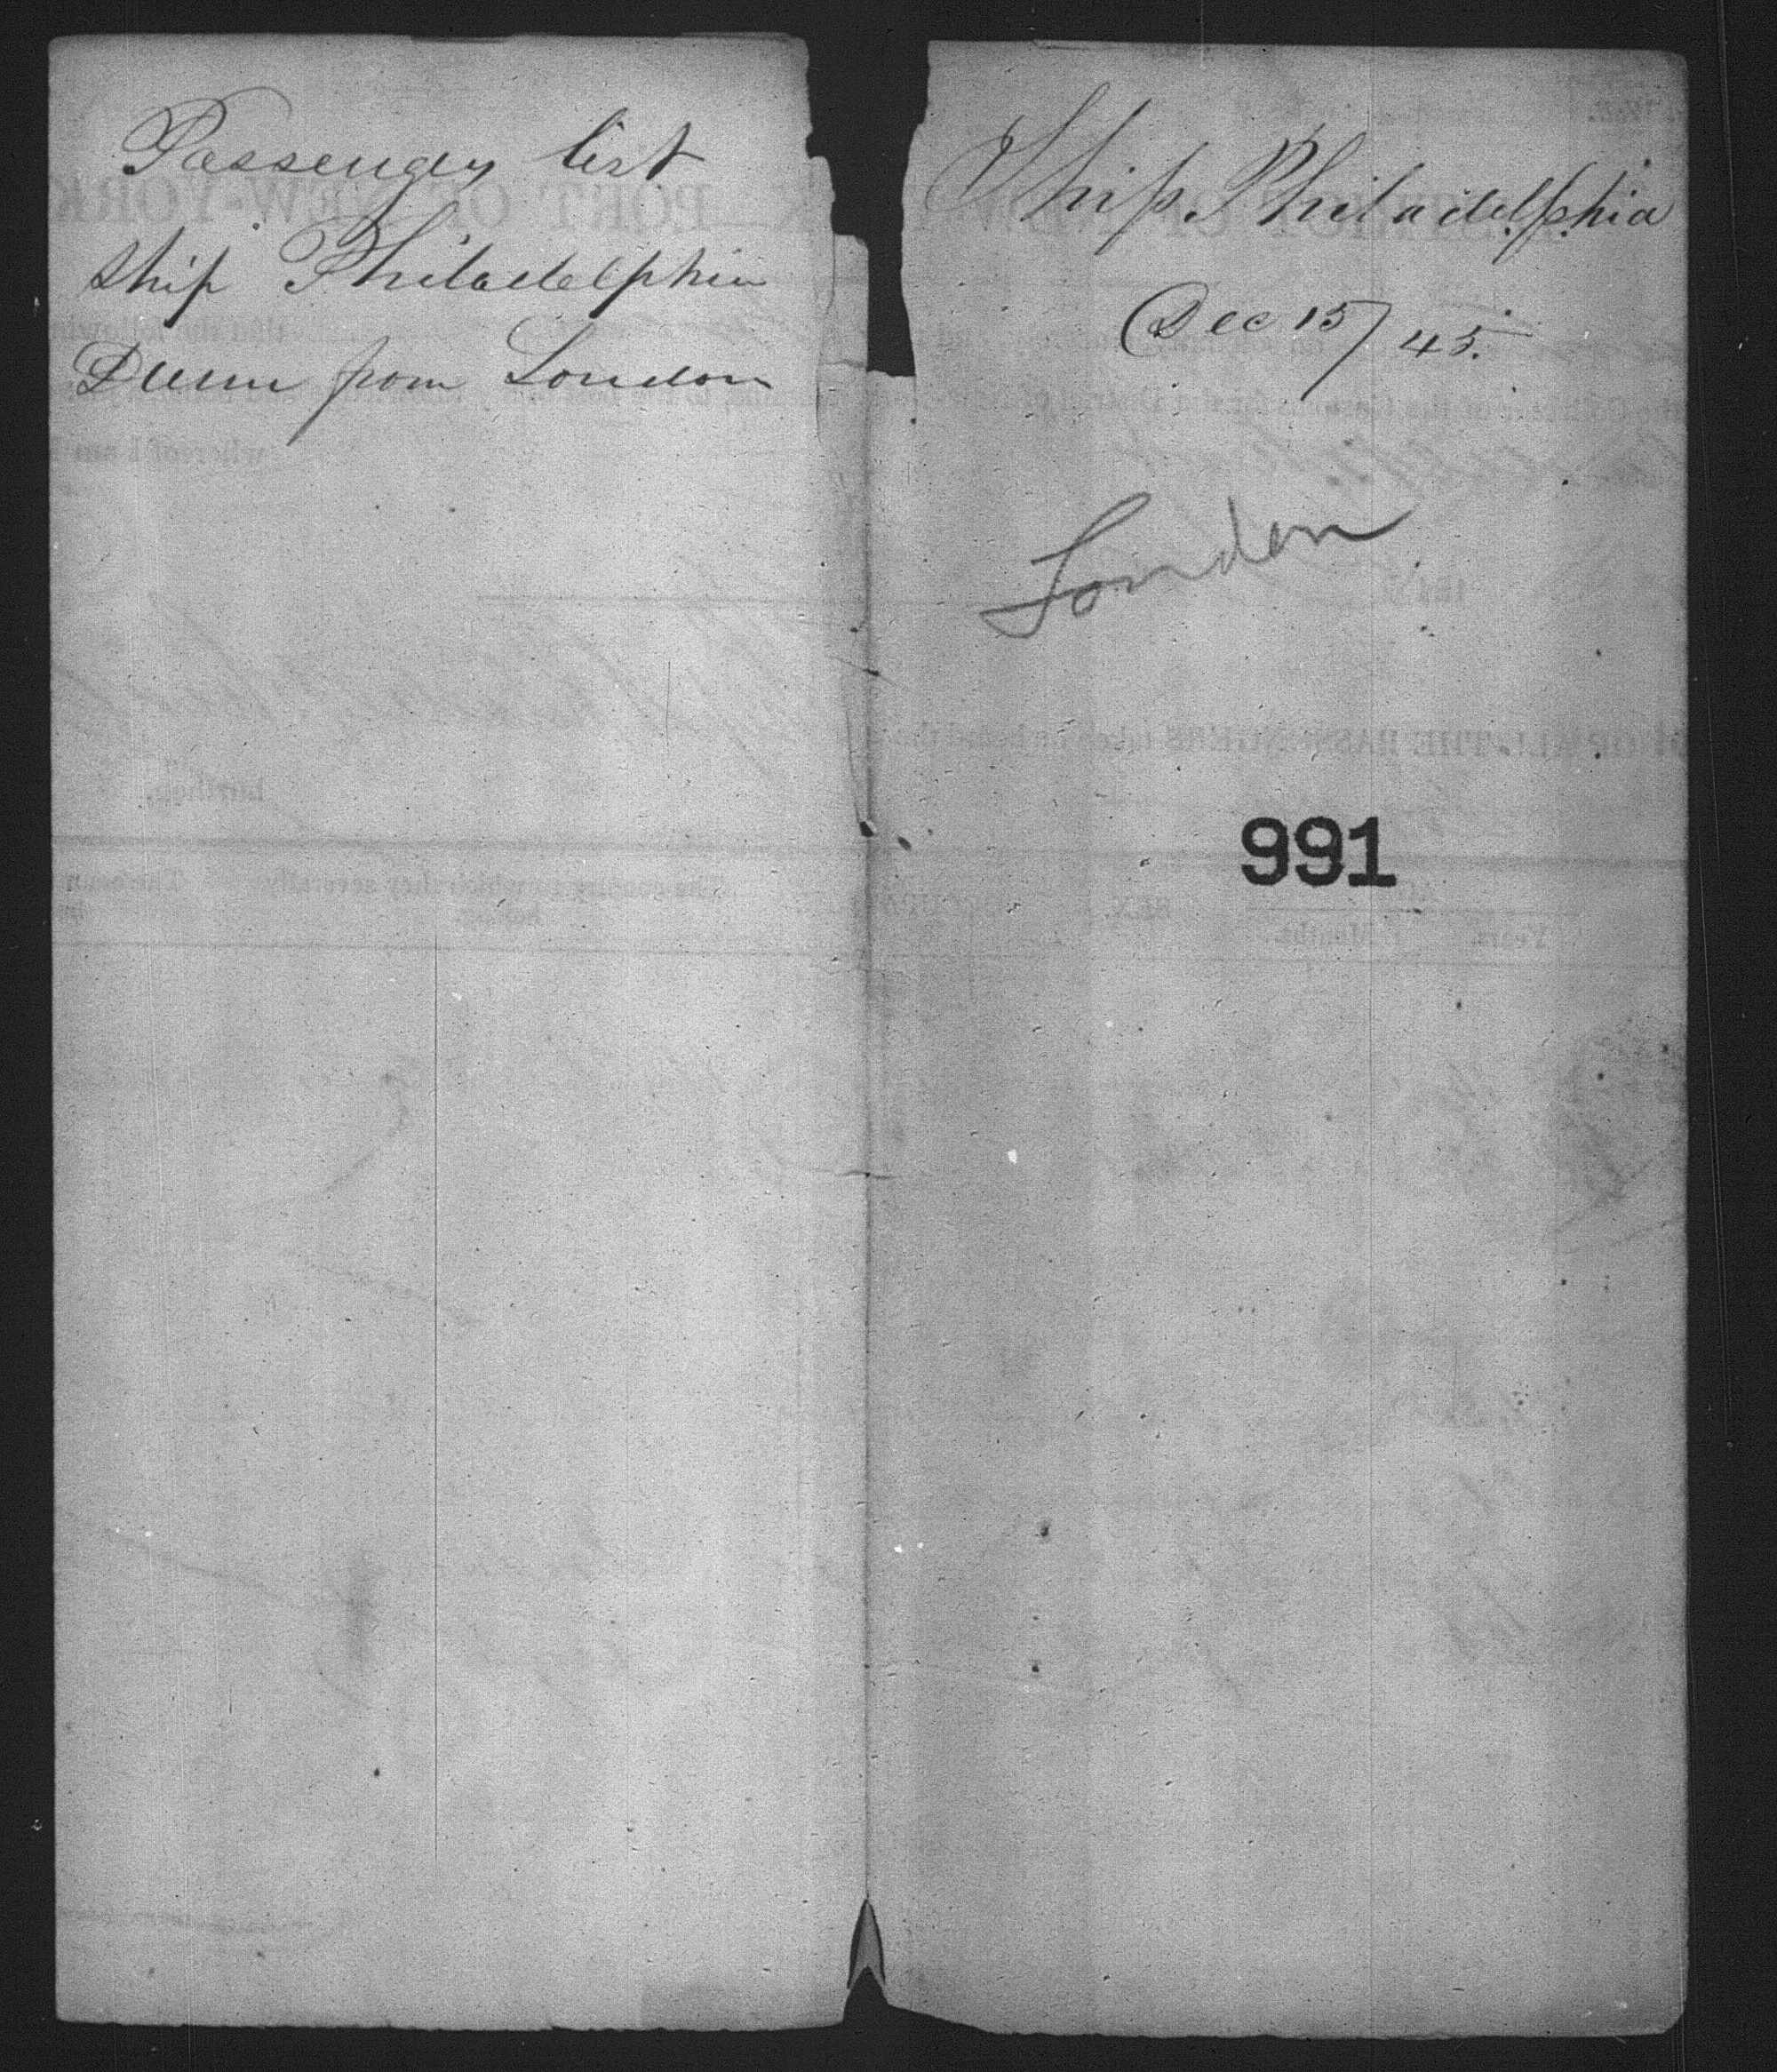 Passenger list
Ship Philadelphia
Dunn from London
Ship Philadelphia
Dec 15/45.
London
991